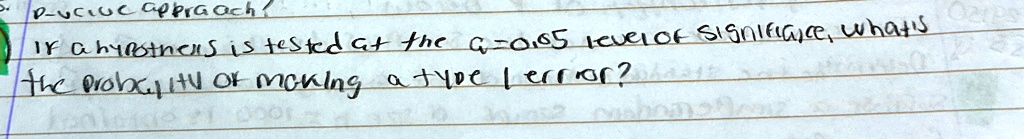 P-value appraach?
If a hypothesis is tested at the α=0.05 level of significance, whatis
the probability of making a type 1 error?